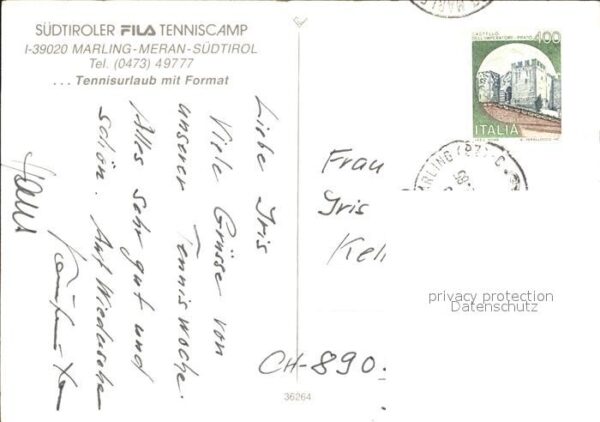 SÜDTIROLER FILA TENNISCAMP
I-39020 MARLING-MERAN-SÜDTIROL
Tel. (0473) 49777
...Tennisurlaub mit Format
Liebe Iris
Viele Grüsse von
unserer Tenniswoche.
Alles sehr gut und
schön. Auf Wiedersehn
400
CASTELLO
DELL'IMPERATORE-PRATO
ITALIA
MARLING (BZ)-C.
Frau
Iris
Kel
CH-890
privacy protection
Datenschutz
36264